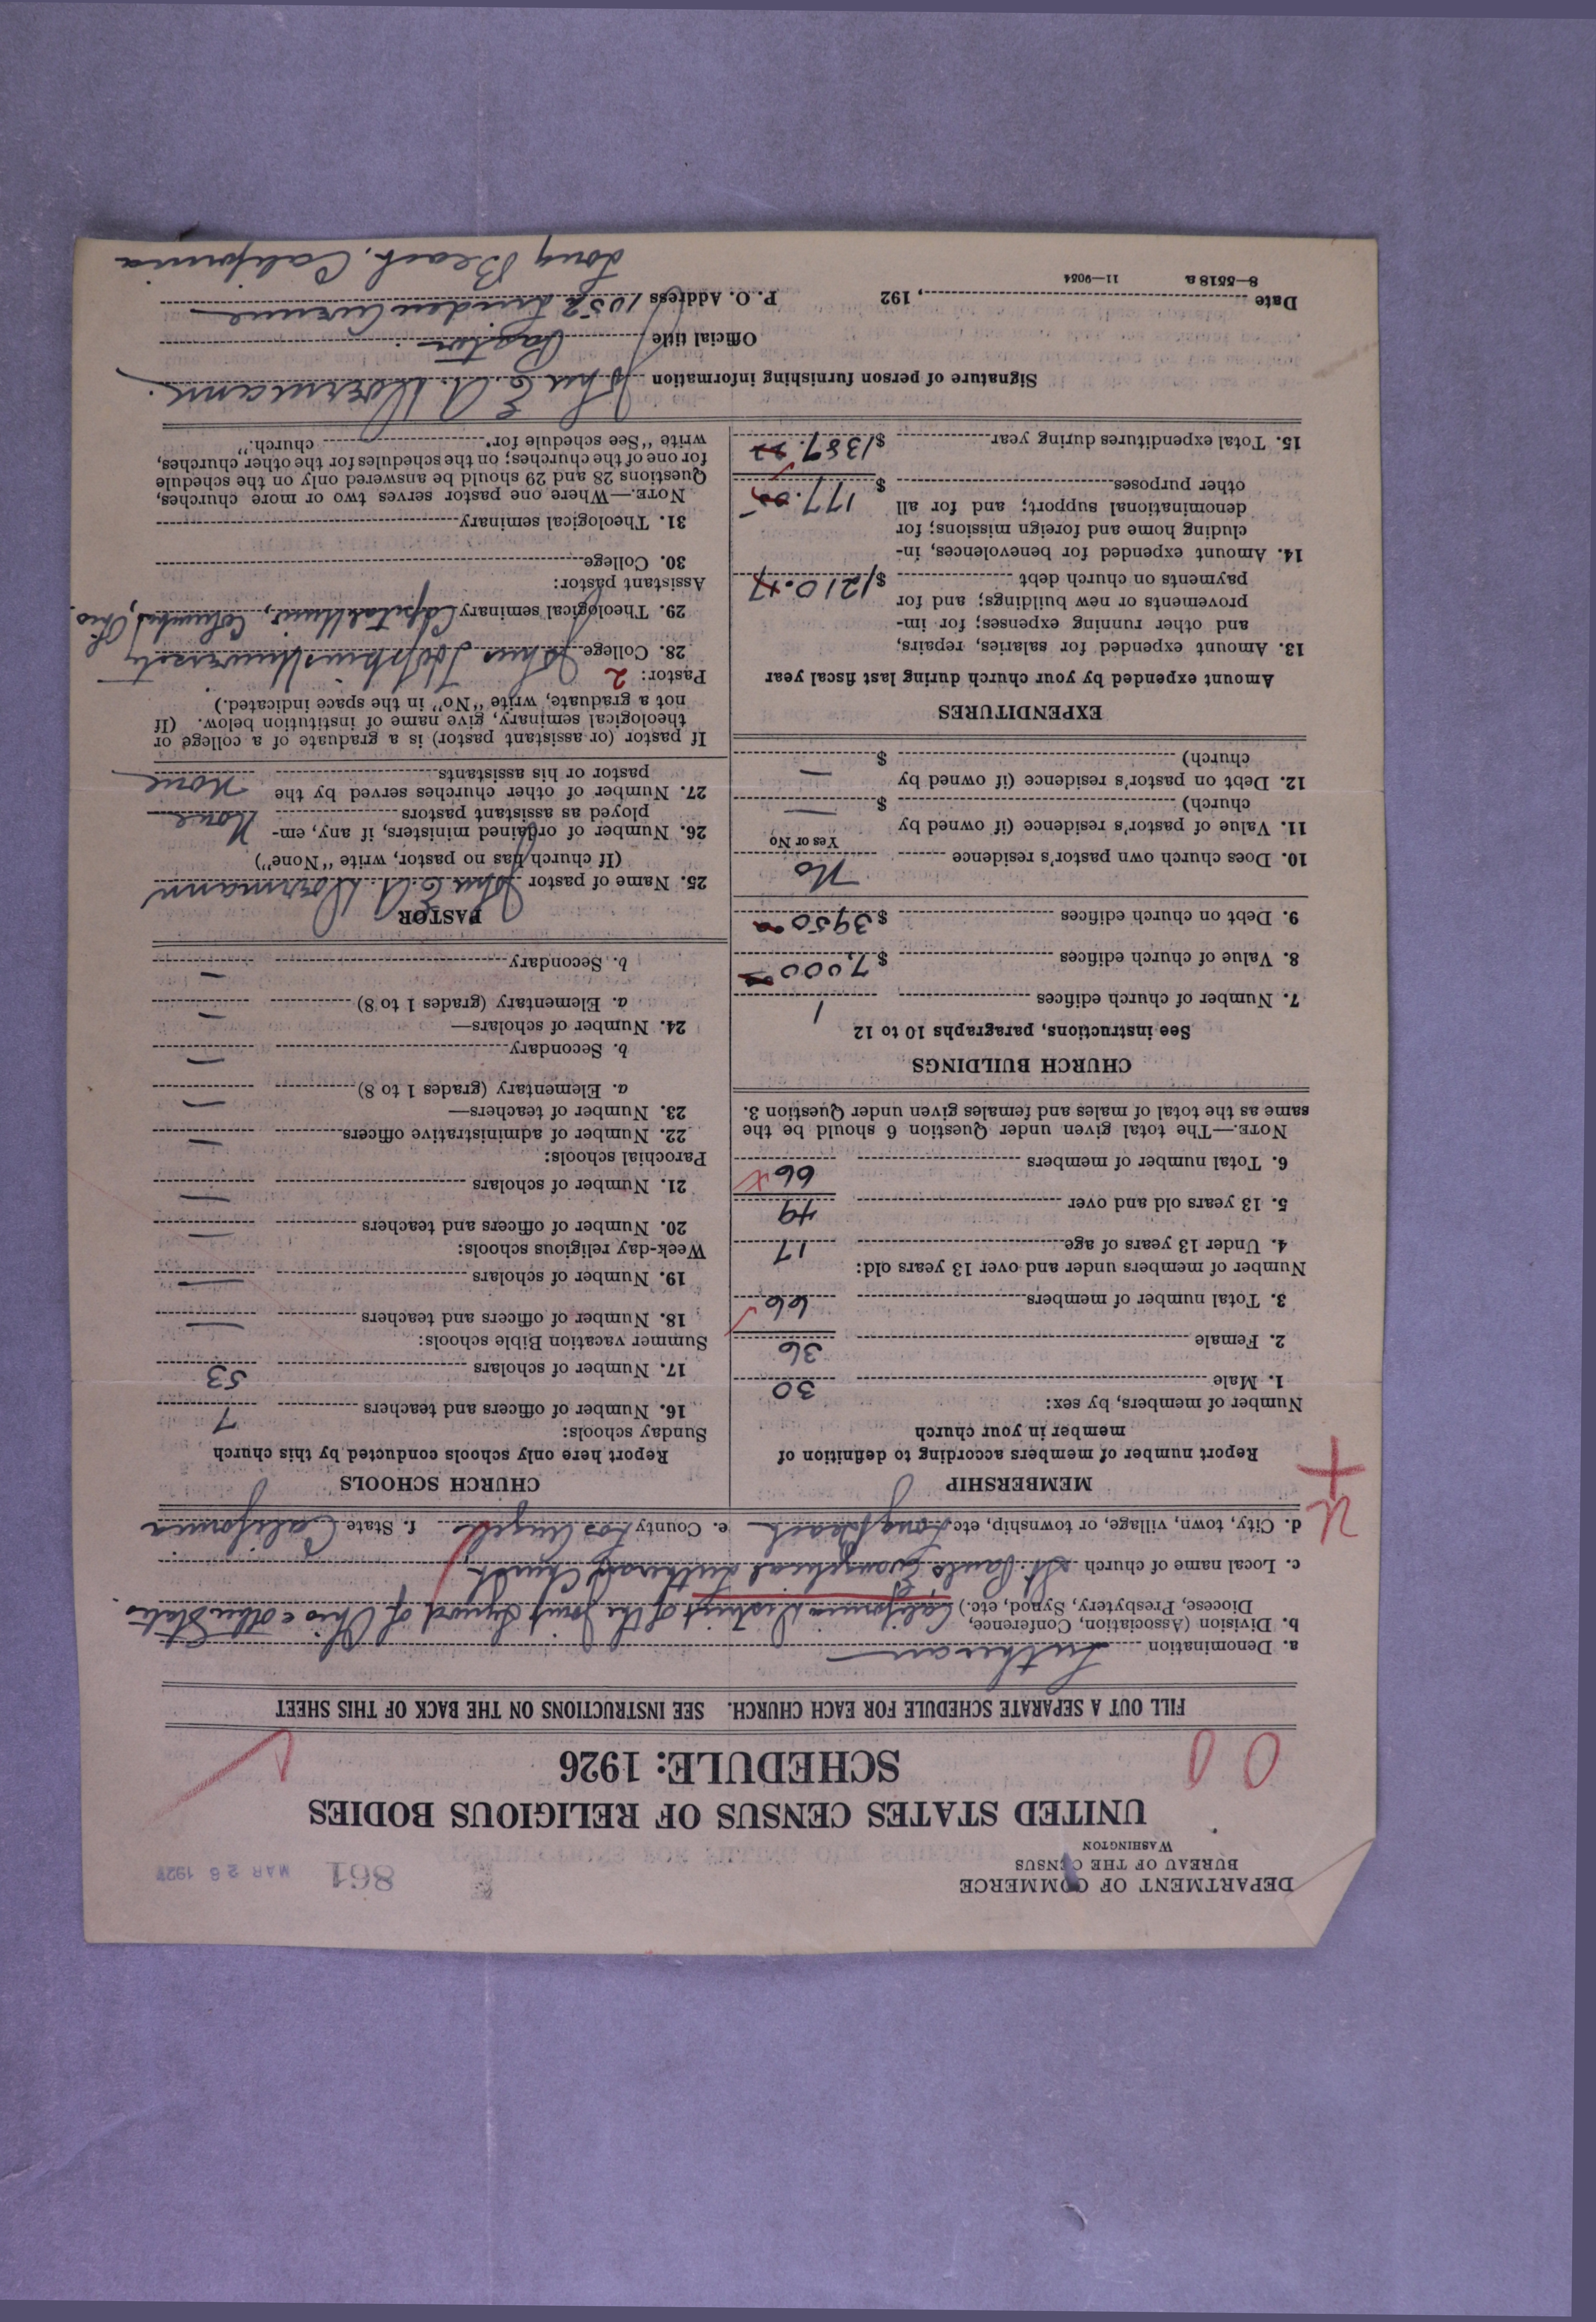 DEPARTMENT OF COMMERCE
BUREAU OF THE CENSUS
WASHINGTON
861 MAR 26 1927
UNITED STATES CENSUS OF RELIGIOUS BODIES
SCHEDULE: 1926
FILL OUT A SEPARATE SCHEDULE FOR EACH CHURCH. SEE INSTRUCTIONS ON THE BACK OF THIS SHEET
a. Denomination Lutheran
b. Division (Association, Conference,
Diocese, Presbytery, Synod, etc.) California District of the Joint Synod of Ohio & other States
c. Local name of church St. Pauls Evangelical Lutheran Church
d. City, town, village, or township, etc. Long Beach e. County Los Angeles f. State California
MEMBERSHIP
Report number of members according to definition of
member in your church
Number of members, by sex:
1. Male 30
2. Female 36
3. Total number of members 66
Number of members under and over 13 years old:
4. Under 13 years of age 17
5. 13 years old and over 49
6. Total number of members 66
NOTE.—The total given under Question 6 should be the
same as the total of males and females given under Question 3.
CHURCH BUILDINGS
See instructions, paragraphs 10 to 12
7. Number of church edifices 1
8. Value of church edifices $7,000
9. Debt on church edifices $3950
10. Does church own pastor's residence No
Yes or No
11. Value of pastor's residence (if owned by
church) $ —
12. Debt on pastor's residence (if owned by
church) $ —
EXPENDITURES
Amount expended by your church during last fiscal year
13. Amount expended for salaries, repairs,
and other running expenses; for im-
provements or new buildings; and for
payments on church debt $1210.
14. Amount expended for benevolences, in-
cluding home and foreign missions; for
denominational support; and for all
other purposes $177.
15. Total expenditures during year $1387.
CHURCH SCHOOLS
Report here only schools conducted by this church
Sunday schools:
16. Number of officers and teachers 7
17. Number of scholars 53
Summer vacation Bible schools:
18. Number of officers and teachers —
19. Number of scholars —
Week-day religious schools:
20. Number of officers and teachers —
21. Number of scholars —
Parochial schools:
22. Number of administrative officers —
23. Number of teachers—
a. Elementary (grades 1 to 8) —
b. Secondary —
24. Number of scholars—
a. Elementary (grades 1 to 8) —
b. Secondary —
PASTOR
25. Name of pastor John E. A. Doermann
(If church has no pastor, write "None")
26. Number of ordained ministers, if any, em-
ployed as assistant pastors None
27. Number of other churches served by the
pastor or his assistants None
If pastor (or assistant pastor) is a graduate of a college or
theological seminary, give name of institution below. (If
not a graduate, write "No" in the space indicated.)
Pastor: 2
28. College Johns Hopkins University
29. Theological seminary Capital Univ., Columbus, Ohio.
Assistant pastor:
30. College
31. Theological seminary
NOTE.—Where one pastor serves two or more churches,
Questions 28 and 29 should be answered only on the schedule
for one of the churches; on the schedules for the other churches,
write "See schedule for church."
Signature of person furnishing information John E. A. Doermann.
Official title Pastor
Date , 192 P. O. Address 1052 Linden Avenue
8—5518 a 11—9054
Long Beach, California